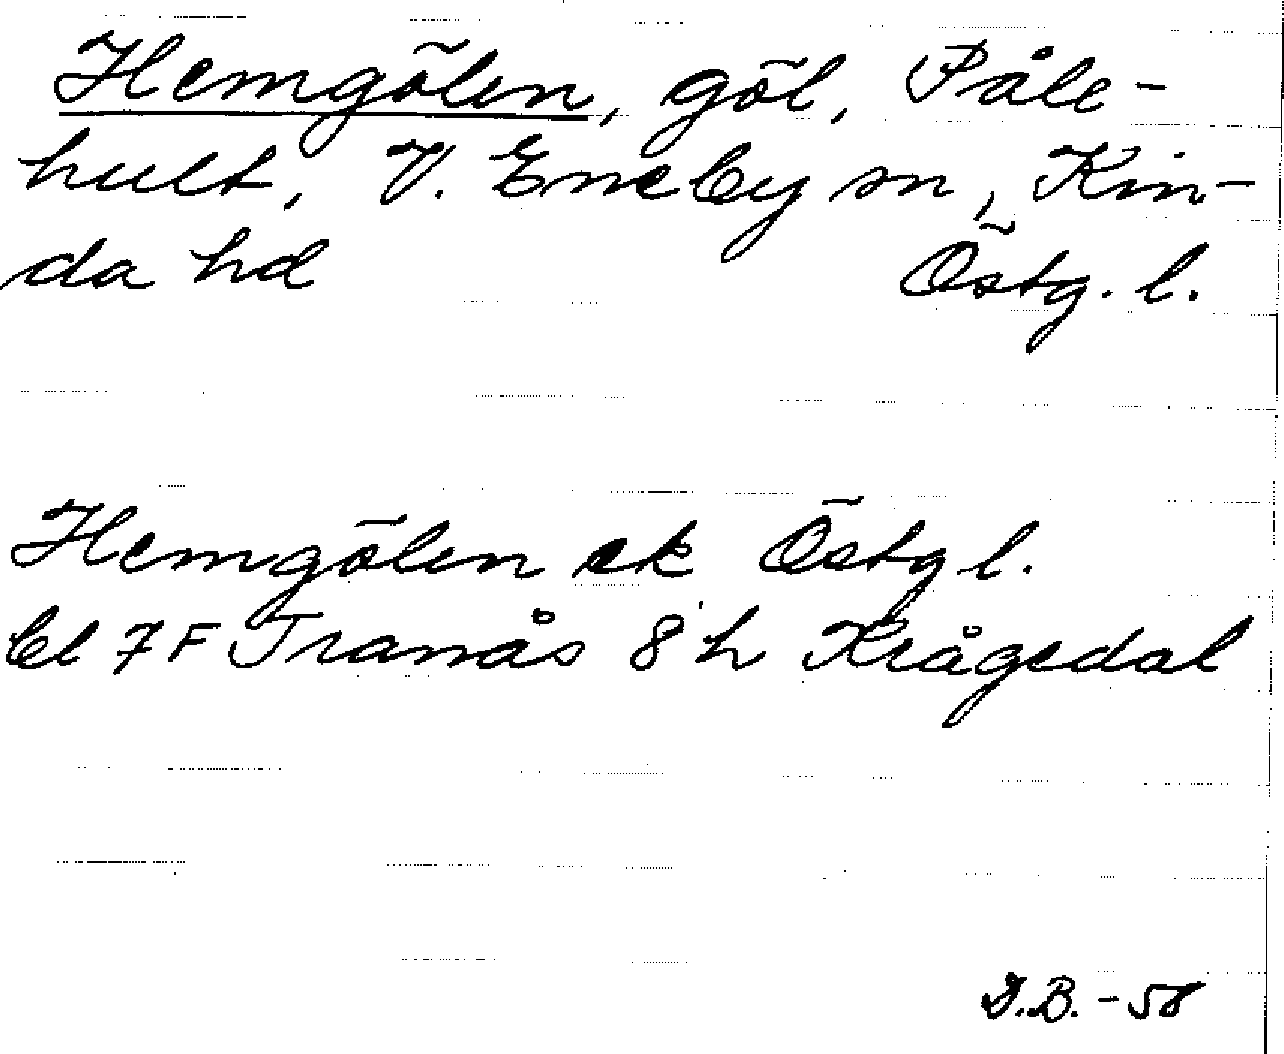 Hemgölen, göl, Påle-
hult, V. Eneby sn, Kin-
da hd Östg. l.
Hemgölen ek Östg l.
bl 7F Tranås 8 h Krågedal
D.B. - 58